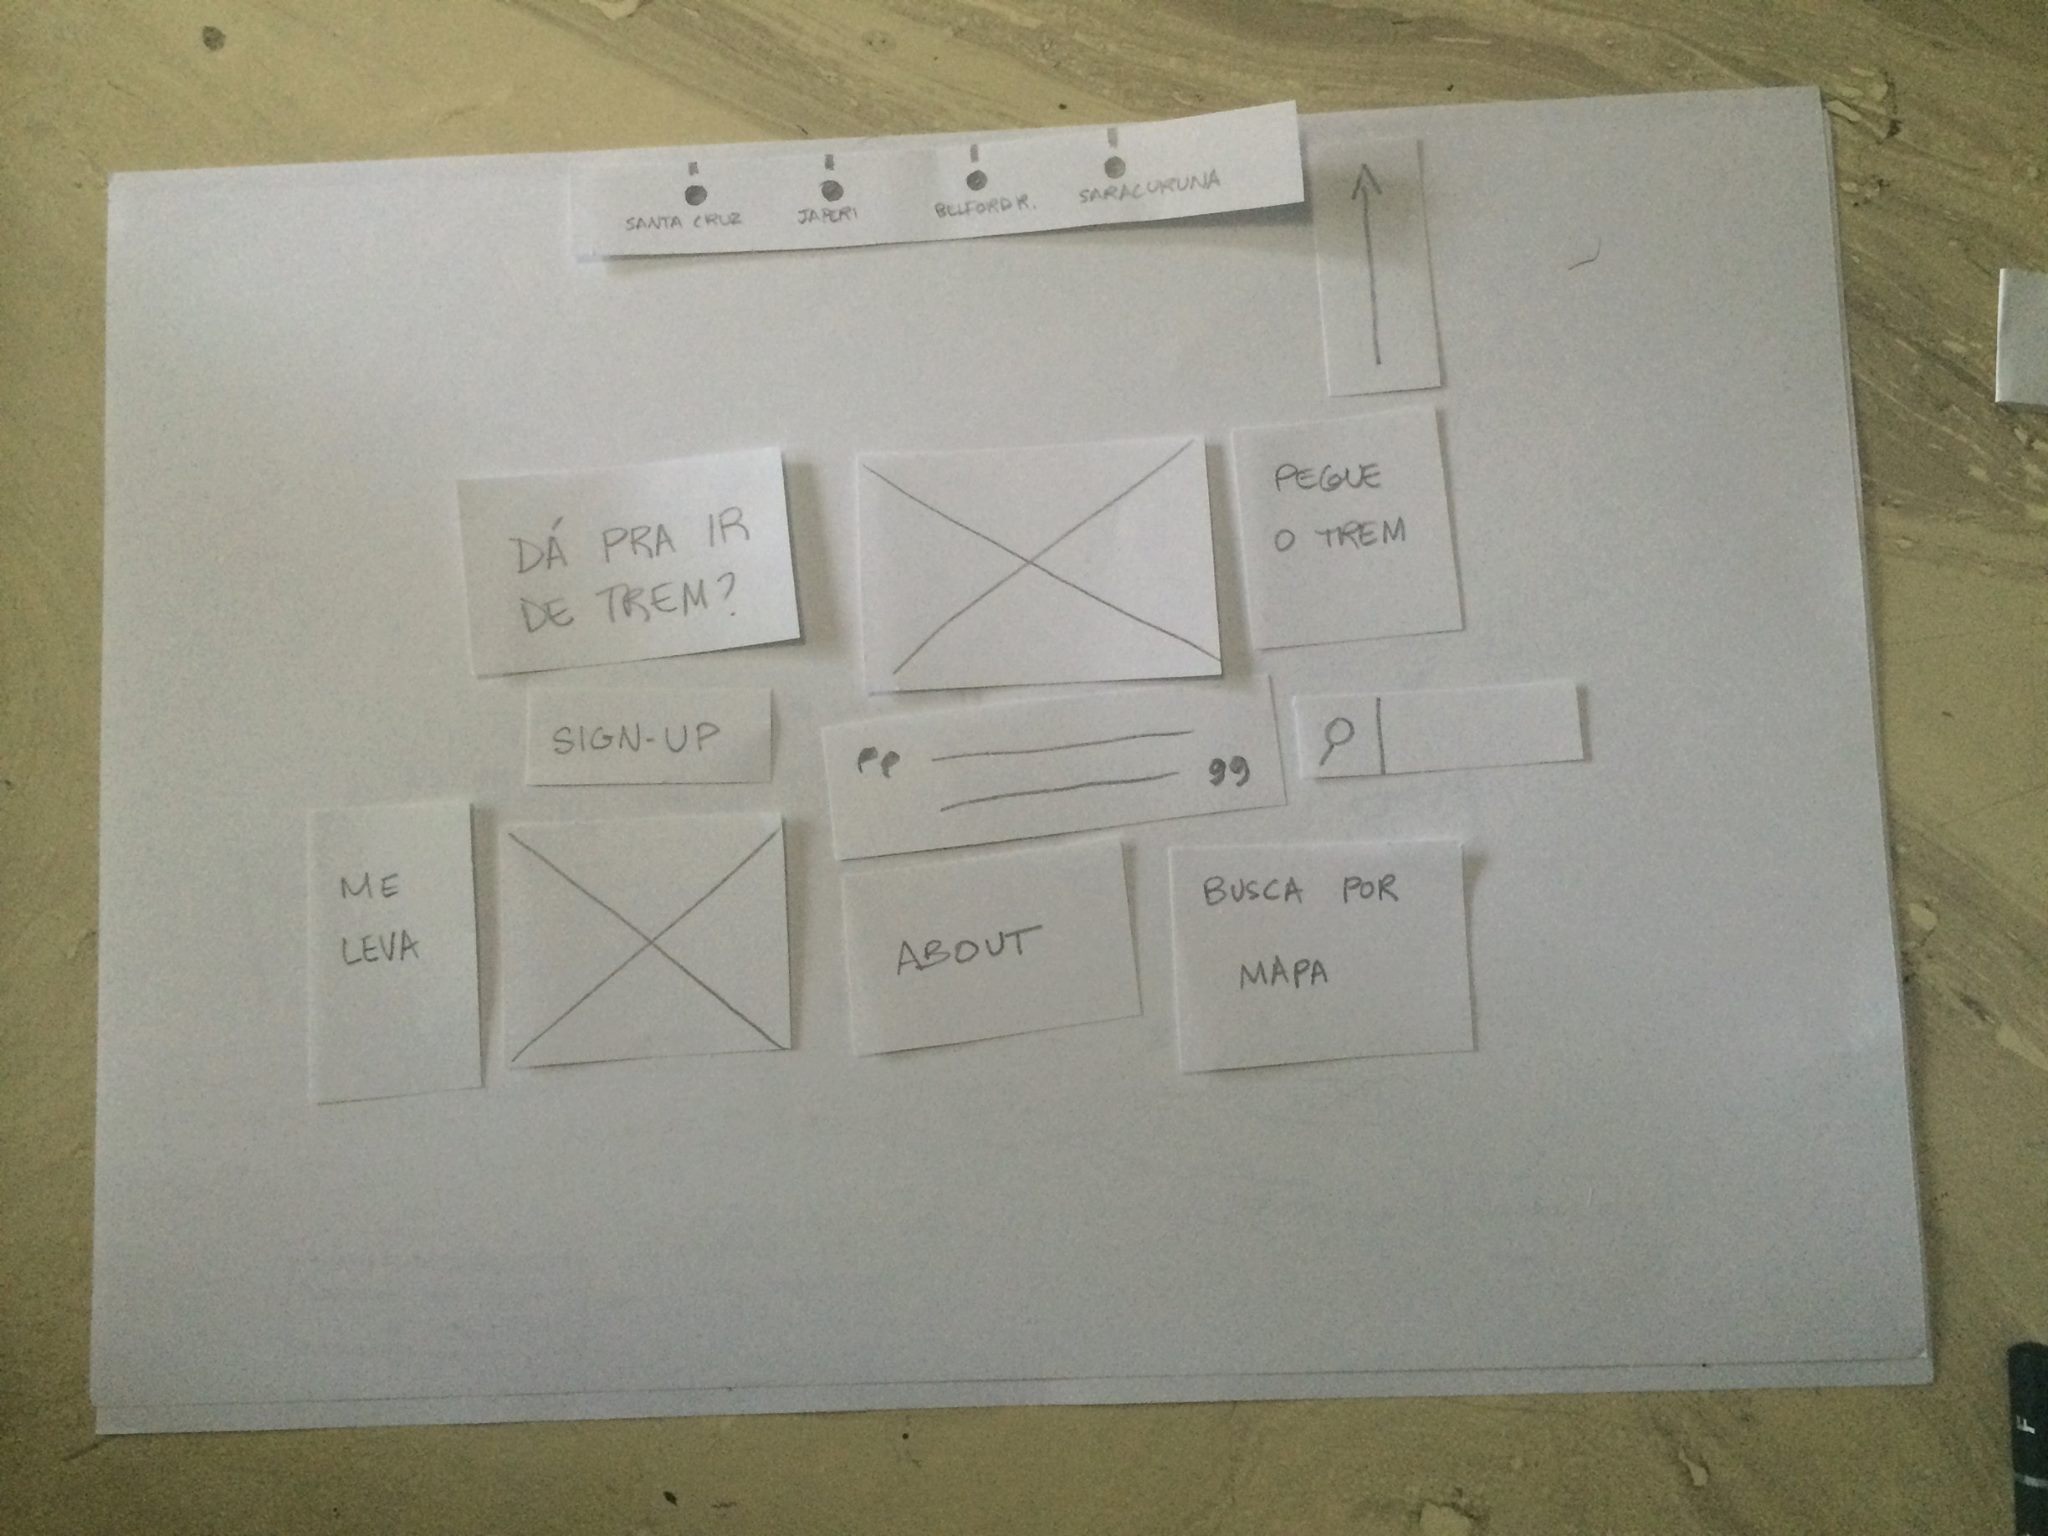 SANTA CRUZ
JAPERI
BELFORD R.
SARACURUNA
DÁ PRA IR
DE TREM?
PEGUE
O TREM
SIGN-UP
ME
LEVA
ABOUT
BUSCA POR
MAPA
F